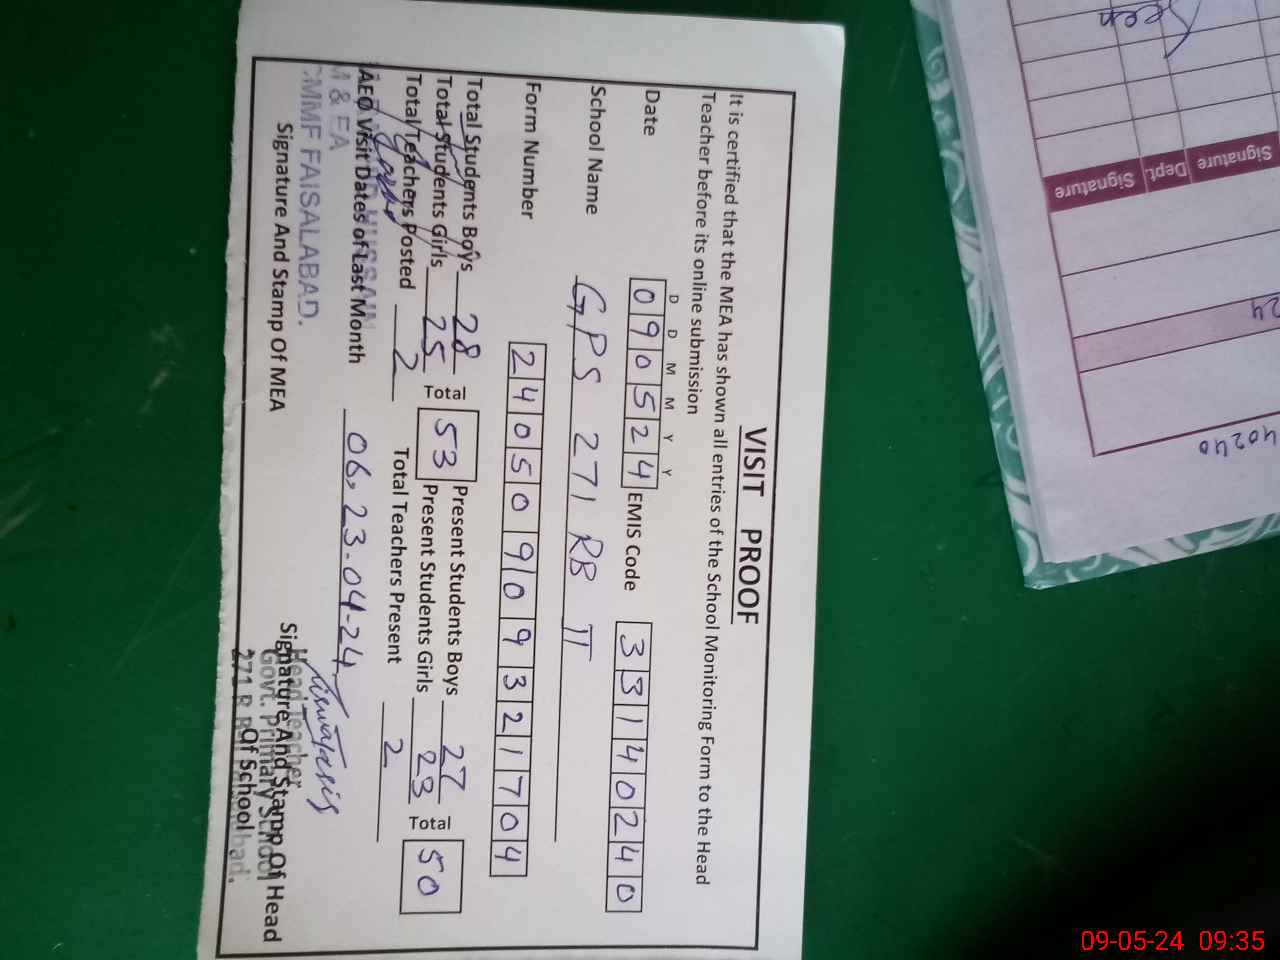 VISIT PROOF
It is certified that the MEA has shown all entries of the School Monitoring Form to the Head
Teacher before its online submission
D D M M Y Y
Date 090524 EMIS Code 33140240
School Name GPS 271 RB II
Form Number 24050909321704
Total Students Boys 28 Present Students Boys 27
Total Students Girls 25 Total 53 Present Students Girls 23 Total 50
Total Teachers Posted 2 Total Teachers Present 2
AEO Visit Dates of Last Month 06, 23.04-24
M & EA
CMMF FAISALABAD.
Signature And Stamp Of MEA
Signature And Stamp Of Head
Of School
Head Teacher
Govt. Primary School
271 R B
Seen
Signature Dept. Signature
24
40240
09-05-24 09:35